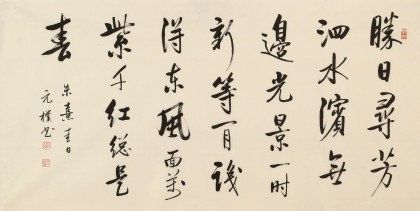 勝日尋芳
泗水濱無
邊光景一时
新等閒識
得東風面萬
紫千紅總是
春
朱熹春日
元樸書